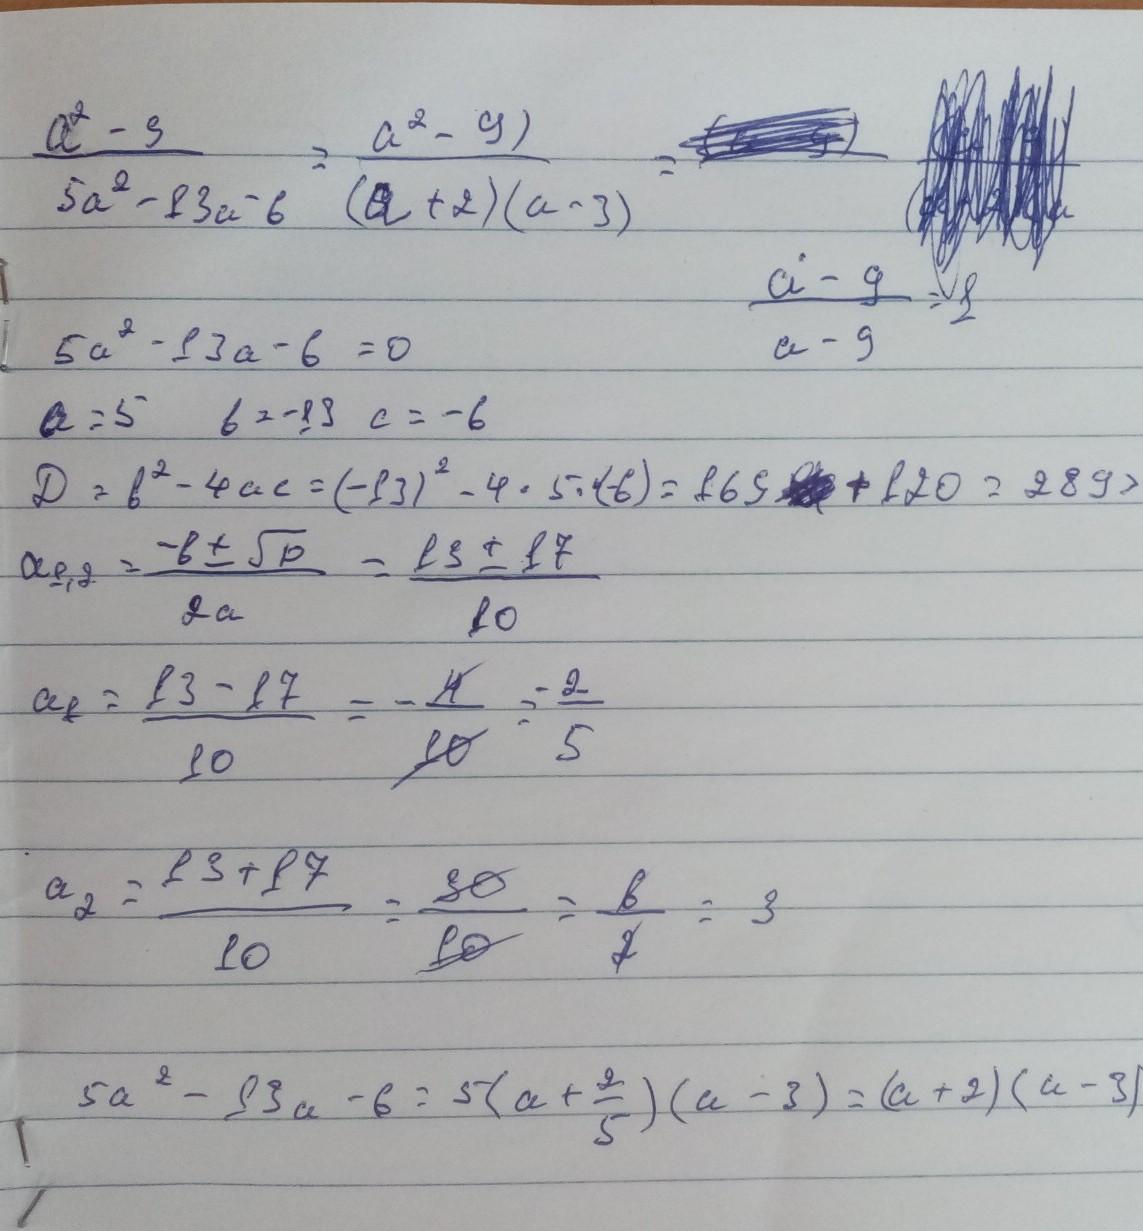 a² - 9 / 5a² - 13a - 6 = a² - 9) / (a + 2)(a - 3) =
a - 9 / a - 9 = 1
5a² - 13a - 6 = 0
a = 5 b = -13 c = -6
D = b² - 4ac = (-13)² - 4 · 5 · (-6) = 169 + 120 = 289 >
a₁,₂ = -b ± √D / 2a = 13 ± 17 / 10
a₁ = 13 - 17 / 10 = - 4 / 10 = - 2 / 5
a₂ = 13 + 17 / 10 = 30 / 10 = 6 / 2 = 3
5a² - 13a - 6 = 5(a + 2/5)(a - 3) = (a + 2)(a - 3)